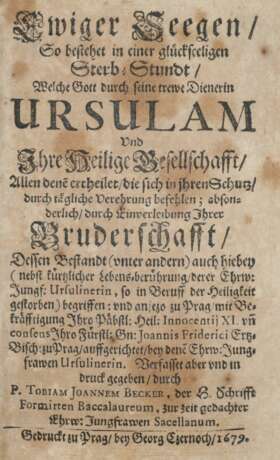 Ewiger Seegen/
So bestehet in einer glückseeligen
Sterb-Stundt/
Welche Gott durch seine trewe Dienerin
URSULAM
Vnd
Ihre Heilige Gesellschafft/
Allen denẽ ertheilet/die sich in jhren Schutz/
durch tägliche Verehrung befehlen; abson-
derlich/durch Einverleibung Ihrer
Bruderschafft/
Dessen Bestandt (vnter andern) auch hiebey
(nebst kürtzlicher Lebens-berührung/derer Ehrw:
Jungf: Ursulinerin, so in Beruff der Heiligkeit
gestorben) begriffen: vnd anjezo zu Prag/mit Be-
kräfftigung Ihro Päbstl: Heil: Innocentij XI. vñ
consens Ihro Fürstl: Gn: Joannis Friderici Ertz-
Bisch: zu Prag/auffgerichtet/bey denẽ Ehrw: Jung-
frawen Ursulinerin. Verfasset aber vnd in
druck gegeben/durch
P. TOBIAM JOANNEM BECKER, der H. Schrifft
Formirten Baccalaureum, zur zeit gedachter
Ehrw: Jungfrawen Sacellanum.
Gedruckt zu Prag/bey Georg Czernoch/1679.